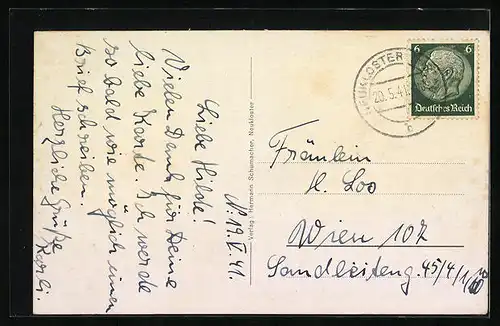 N. 19. V. 41.
Liebe Hilde!
Vielen Dank für Deine
liebe Karte. Ich werde
so bald wie möglich einen
Brief schreiben.
Herzliche Grüße
Karli.
Verlag: Hermann Schumacher, Neukloster
NEUKLOSTER
20.5.41
b
6 6
Deutsches Reich
Fräulein
H. Loo
Wien 107
Sandleiteng. 45/4/1/